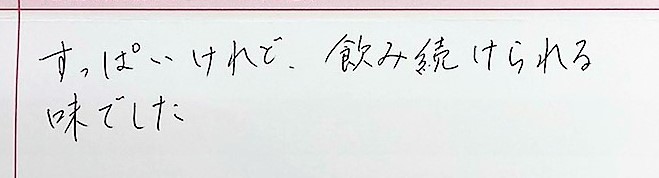 すっぱいけれど、飲み続けられる
味でした